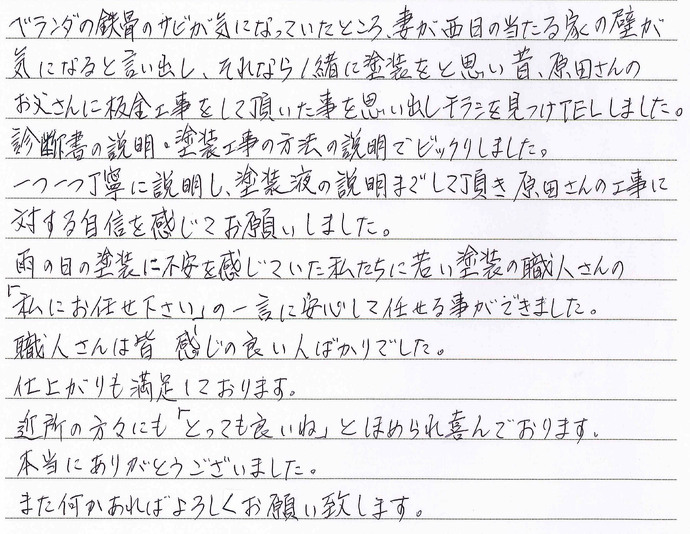 ベランダの鉄骨のサビが気になっていたところ、妻が西日の当たる家の壁が
気になると言い出し、それなら一緒に塗装をと思い昔、原田さんの
お父さんに板金工事をして頂いた事を思い出しチラシを見つけTELしました。
診断書の説明・塗装工事の方法の説明でビックリしました。
一つ一つ丁寧に説明し、塗装液の説明までして頂き原田さんの工事に
対する自信を感じてお願いしました。
雨の日の塗装に不安を感じていた私たちに若い塗装の職人さんの
「私にお任せ下さい」の一言に安心して任せる事ができました。
職人さんは皆 感じの良い人ばかりでした。
仕上がりも満足しております。
近所の方々にも「とっても良いね」とほめられ喜んでおります。
本当にありがとうございました。
また何かあればよろしくお願い致します。